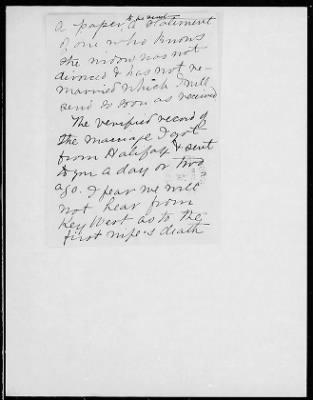 to be sent
a paper, a statement
of one who knows
the widow was not
divorced & has not re-
married which I will
send so soon as received
The verified record of
the marriage I got
from Halifax & sent
to you a day or two
ago. I fear we will
not hear from
Key West as to the
first wife's death